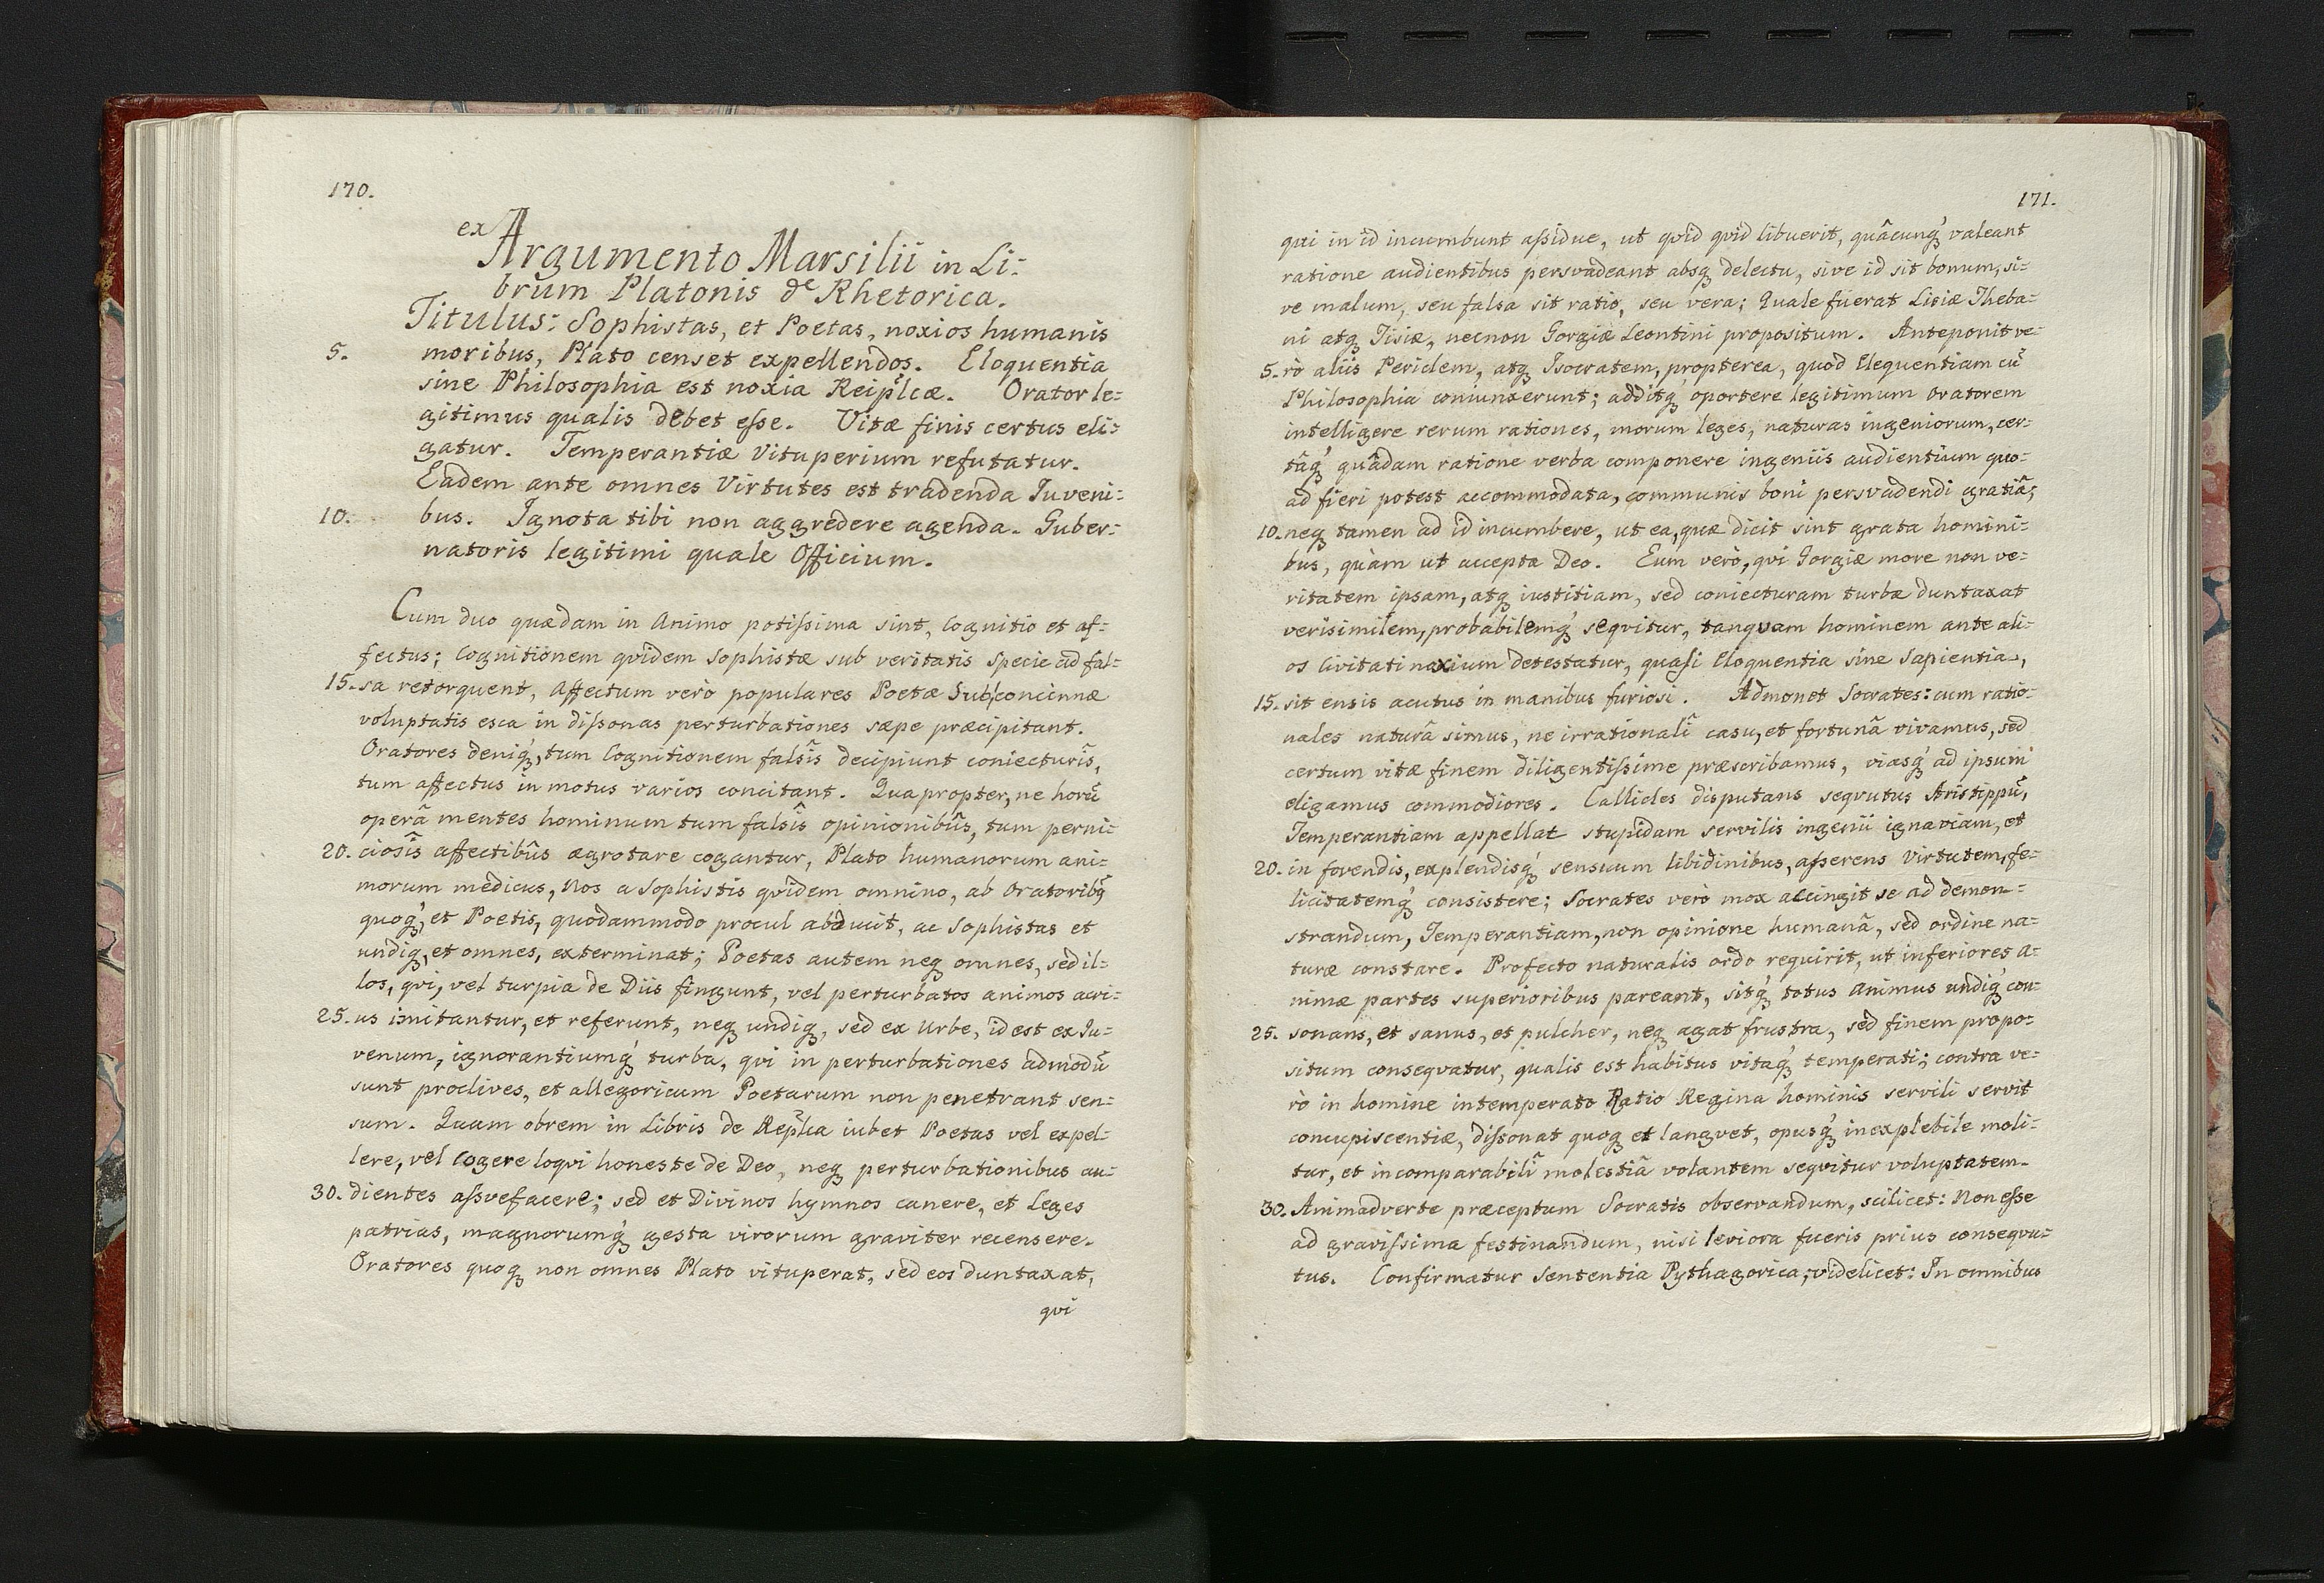 170.
ex Argumento Marsilii in Li-
brum Platonis de Rhetorica.
Titulus: Sophistas, et Poetas, noxios humanis
5. moribus, Plato censet expellendos. Eloquentia
sine Philosophia est noxia Reip̃lcæ. Orator le-
gitimus qualis debet eſse. Vitæ finis certus eli-
gatur. Temperantiæ Vituperium refutatur.
Eadem ante omnes Virtutes est tradenda Iuveni-
10. bus. Ignota tibi non aggredere agenda. Guber-
natoris legitimi quale Officium.
Cum duo quædam in Animo potiſsima sint, Cognitio et af-
fectus; Cognitionem qvidem Sophistæ sub veritatis specie ad fal-
15. sa retorquent, Affectum verò populares Poetæ sub concinnæ
voluptatis esca in diſsonas perturbationes sæpe præcipitant.
Oratores deniq́;, tum Cognitionem falsîs decipiunt coniecturîs,
tum affectus in motus varios concitant. Quapropter, ne horũ
operâ mentes hominum tum falsîs opinionibûs, tum perni-
20. ciosîs affectibûs ægrotare cogantur, Plato humanorum ani-
morum medicus, Nos a Sophistis qvidem omnino, ab Oratoribq̃
quoq́;, et Poetis, quodammodo procul abducit, ac Sophistas et
undiq;, et omnes, exterminat; Poetas autem neq; omnes, sed il-
los, qvi, vel turpia de Diis fingunt, vel perturbatos animos acri-
25. us imitantur, et referunt, neq; undiq;, sed ex Urbe, id est ex Iu-
venum, ignorantiumq́; turba, qvi in perturbationes admodũ
sunt proclives, et allegoricum Poetarum non penetrant sen-
sum. Quam obrem in Libris de Rep̃lca iubet Poetas vel expel-
lere, vel cogere loqvi honeste de Deo, neq; perturbationibus au-
30. dientes aſsvefacere; sed et Divinos hymnos canere, et Leges
patrias, magnorumq́; gesta virorum graviter recensere.
Oratores quoq; non omnes Plato vituperat, sed eos duntaxat,
qvi
171.
qui in id incumbunt aſsidue, ut qvid qvid libuerit, quâcunq́; valeant
ratione audientibus persvadeant absq; delectu, sive id sit bonum, si-
ve malum, seu falsa sit ratio, seu vera; Quale fuerat Lisiæ Theba-
ni atq; Tisiæ, necnon Gorgiæ Leontini propositum. Anteponit ve-
5. rò aliis Periclem, atq; Isocratem, propterea, quod Elequentiam cũ
Philosophia coniunxerunt; additq́; oportere legitimum Oratorem
intelligere rerum rationes, morum leges, naturas ingeniorum, cer-
tâq́; quâdam ratione verba componere ingeniis audientium quo-
ad fieri potest accommodata, communis boni persvadendi gratiâ;
10. neq; tamen ad id incumbere, ut ea, quæ dicit sint grata homini-
bus, quàm ut accepta Deo. Eum verò, qvi Gorgiæ more non ve-
ritatem ipsam, atq; iustitiam, sed coniecturam turbæ duntaxat
verisimilem, probabilemq́; seqvitur, tanquam hominem ante ali-
os Civitati noxium detestatur, quaſi Eloquentia sine Sapientia,
15. sit ensis acutus in manibus furiosi. Admonet Socrates: cum ratio-
nales naturâ simus, ne irrationalî casu, et fortunâ vivamus, sed
certum vitæ finem diligentiſsime præscribamus, viasq́; ad ipsum
eligamus commodiores. Callicles disputans seqvutus Aristippũ,
Temperantiam appellat stupidam servilis ingenii ignaviam, et
20. in fovendis, explendisq́; sensuum libidinibus, aſserens Virtutem, fe-
licitatemq́; consistere; Socrates verò mox accingit se ad demon-
strandum, Temperantiam, non opinione humanâ, sed ordine na-
turæ constare. Profecto naturalis ordo requirit, ut inferiores a-
nimæ partes superioribus pareant, sitq́; totus animus undiq; con-
25. sonans, et sanus, et pulcher, neq; agat frustra, sed finem propo-
situm conseqvatur, qualis est habitus vitaq́; temperati; contra ve-
rò in homine intemperato Ratio Regina hominis servili servit
concupiscentiæ, diſsonat quoq; et langvet, opusq́; inexplebile moli-
tur, et incomparabilî molestiâ volantem seqvitur voluptatem.
30. Animadverte præceptum Socratis observandum, scilicet: Non eſse
ad graviſsima festinandum, nisi leviora fueris prius conseqvu-
tus. Confirmatur sententia Pythagorica; videlicet: In omnibus